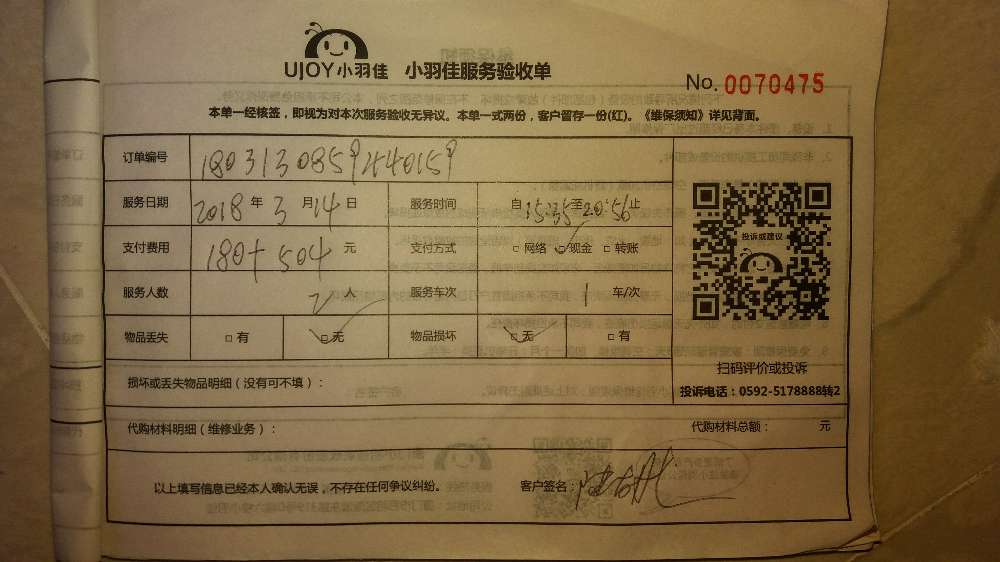 UJOY小羽佳 小羽佳服务验收单
No. 0070475
本单一经核签，即视为对本次服务验收无异议。本单一式两份，客户留存一份(红)。《维保须知》详见背面。
订单编号 1803130859440159
服务日期 2018 年 3 月 14 日 服务时间 自 15:35 至 20:56 止
支付费用 180+504 元 支付方式 □ 网络 ☑ 现金 □ 转账
服务人数 2 人 服务车次 1 车/次
物品丢失 □ 有 ☑ 无 物品损坏 ☑ 无 □ 有
投诉或建议
扫码评价或投诉
投诉电话：0592-5178888转2
损坏或丢失物品明细（没有可不填）：
代购材料明细（维修业务）： 代购材料总额： 元
以上填写信息已经本人确认无误，不存在任何争议纠纷。 客户签名：